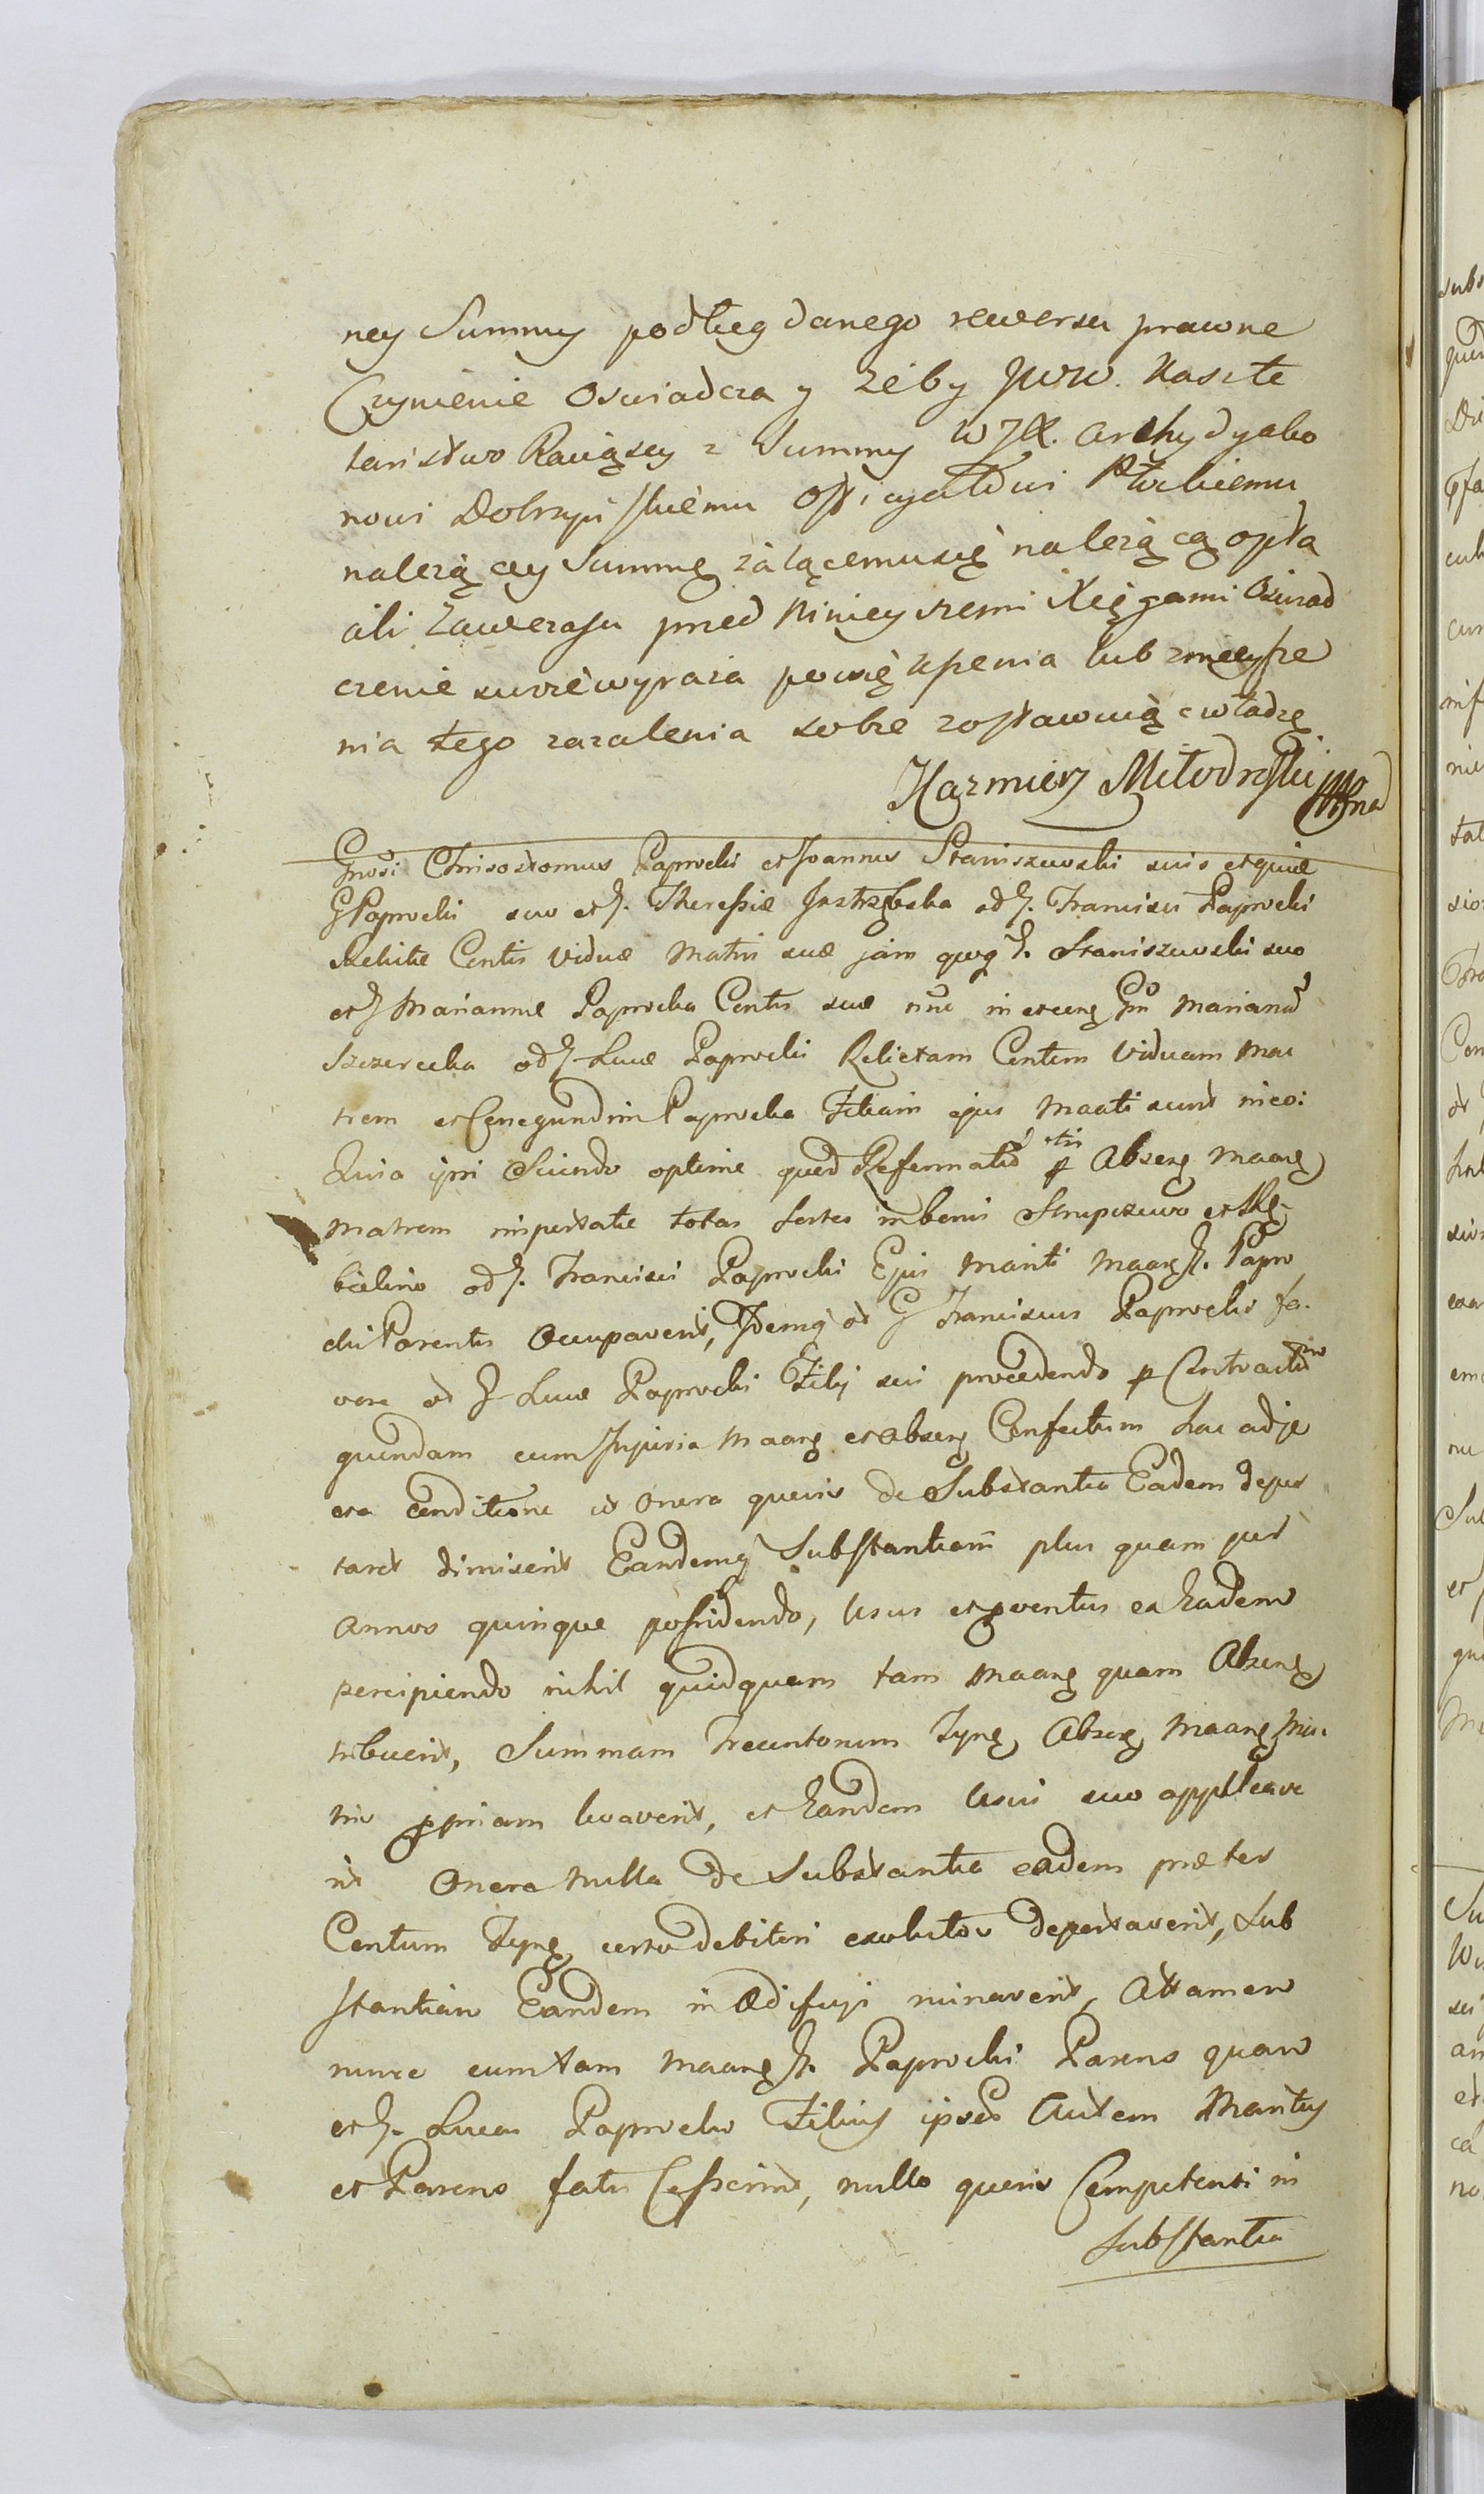 ney Summy podług danego rewersu prawne
Czynienie Oswiadcza y żeby JWW. Kaszte
laństwo Rawięscy z Summy WJX. Archydyako
nowi Dobrzyńskiemu Officyałowi Płockiemu
należącey Summę żalącemu się należącą opła
cili Zawczasu przed Ninieyszemi Xięgami Oswiad
czenie swoie wyraża powiększenia lub zmnieysze
nia tego zażalenia sobie zostawuiąc władzę
Kazmierz Młodzski
Gnosi Chrisostomus Paprocki et Joannes Staniszewski suis et quidem
G Paprocki suo et G. Theressiæ Jastrzębska od G. Francisci Paprocki
Relictæ Contis Viduæ Matris suæ jam quoq G. Staniszewski suo
et G Mariannæ Paprocka Contis suæ nñe in et cong Gm Marianna
Szczerecka od G. Lucæ Paprocki Relictam Contem Viduam Ma
trem et Conegundim Paprocka Filiam ejus Maati sunt in eo:
Quia ipsi Sciendo optime quod Reformatio etis p Absenq Maanq
Matrem importatæ totas Sortes in bonis Strupczewo et Ską
bielino od G. Francisci Paprocki Ejus Mariti Maanq G. Papro
cki Parentis Occupaverit, Idemq od G Franciscus Paprocki fa
vore od G Lucæ Paprocki Filij sui procedendo p Contractum
quendam cum Injuria Maanq et absenq Confectum hac adje
cta conditione ut Onera quævis de Substantia Eadem depor
taret dimiserit Eandemq Substantiam plus quam per
annos quinque possidendo, Usus et proventus ex Eadem
percipiendo nihil quidquam tam Maanq quam Absenq
tribuerit, Summam Trecentorum Fynq Absenq Maanq Ma
tris ppriam levaverit, et Eandem Usui suo applicave
rit Onera Nulla de Substantia eadem præter
Centum Fynq certo debitori exolutos deportaverit, Sub
stantiam Eandem in Ædificys ruinaverit, Attamen
nunc cum tam Maanq G. Paprocki Parens quam
et G. Lucas Paprocki Filius ipsis Autem Maritus
et Parens fatis Cesserint, nullo quovis Competenti in
Substantia